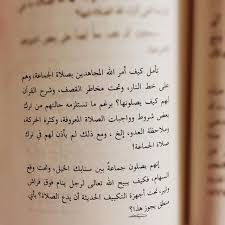 تأمل كيف أمر الله المجاهدين بصلاة الجماعة، وهم
على خط النار، وتحت مخاطر القصف، وشرح القرآن
لهم كيف يصلونها؟ برغم ما تستلزمه حالتهم من ترك
بعض شروط وواجبات الصلاة المعروفة، وكثرة الحركة،
وملاحظة العدو، إلخ، ومع ذلك لم يأذن لهم في ترك
صلاة
إنهم يصلون جماعة بين سنابك الخيل، وتحت وقع
السهام، فكيف يبيح الله تعالى لرجل ينام فوق فراش
وثير، تحت أجهزة التكييف الحديثة أن يدع الصلاة؟ بأي
منطق يجوز هذا؟